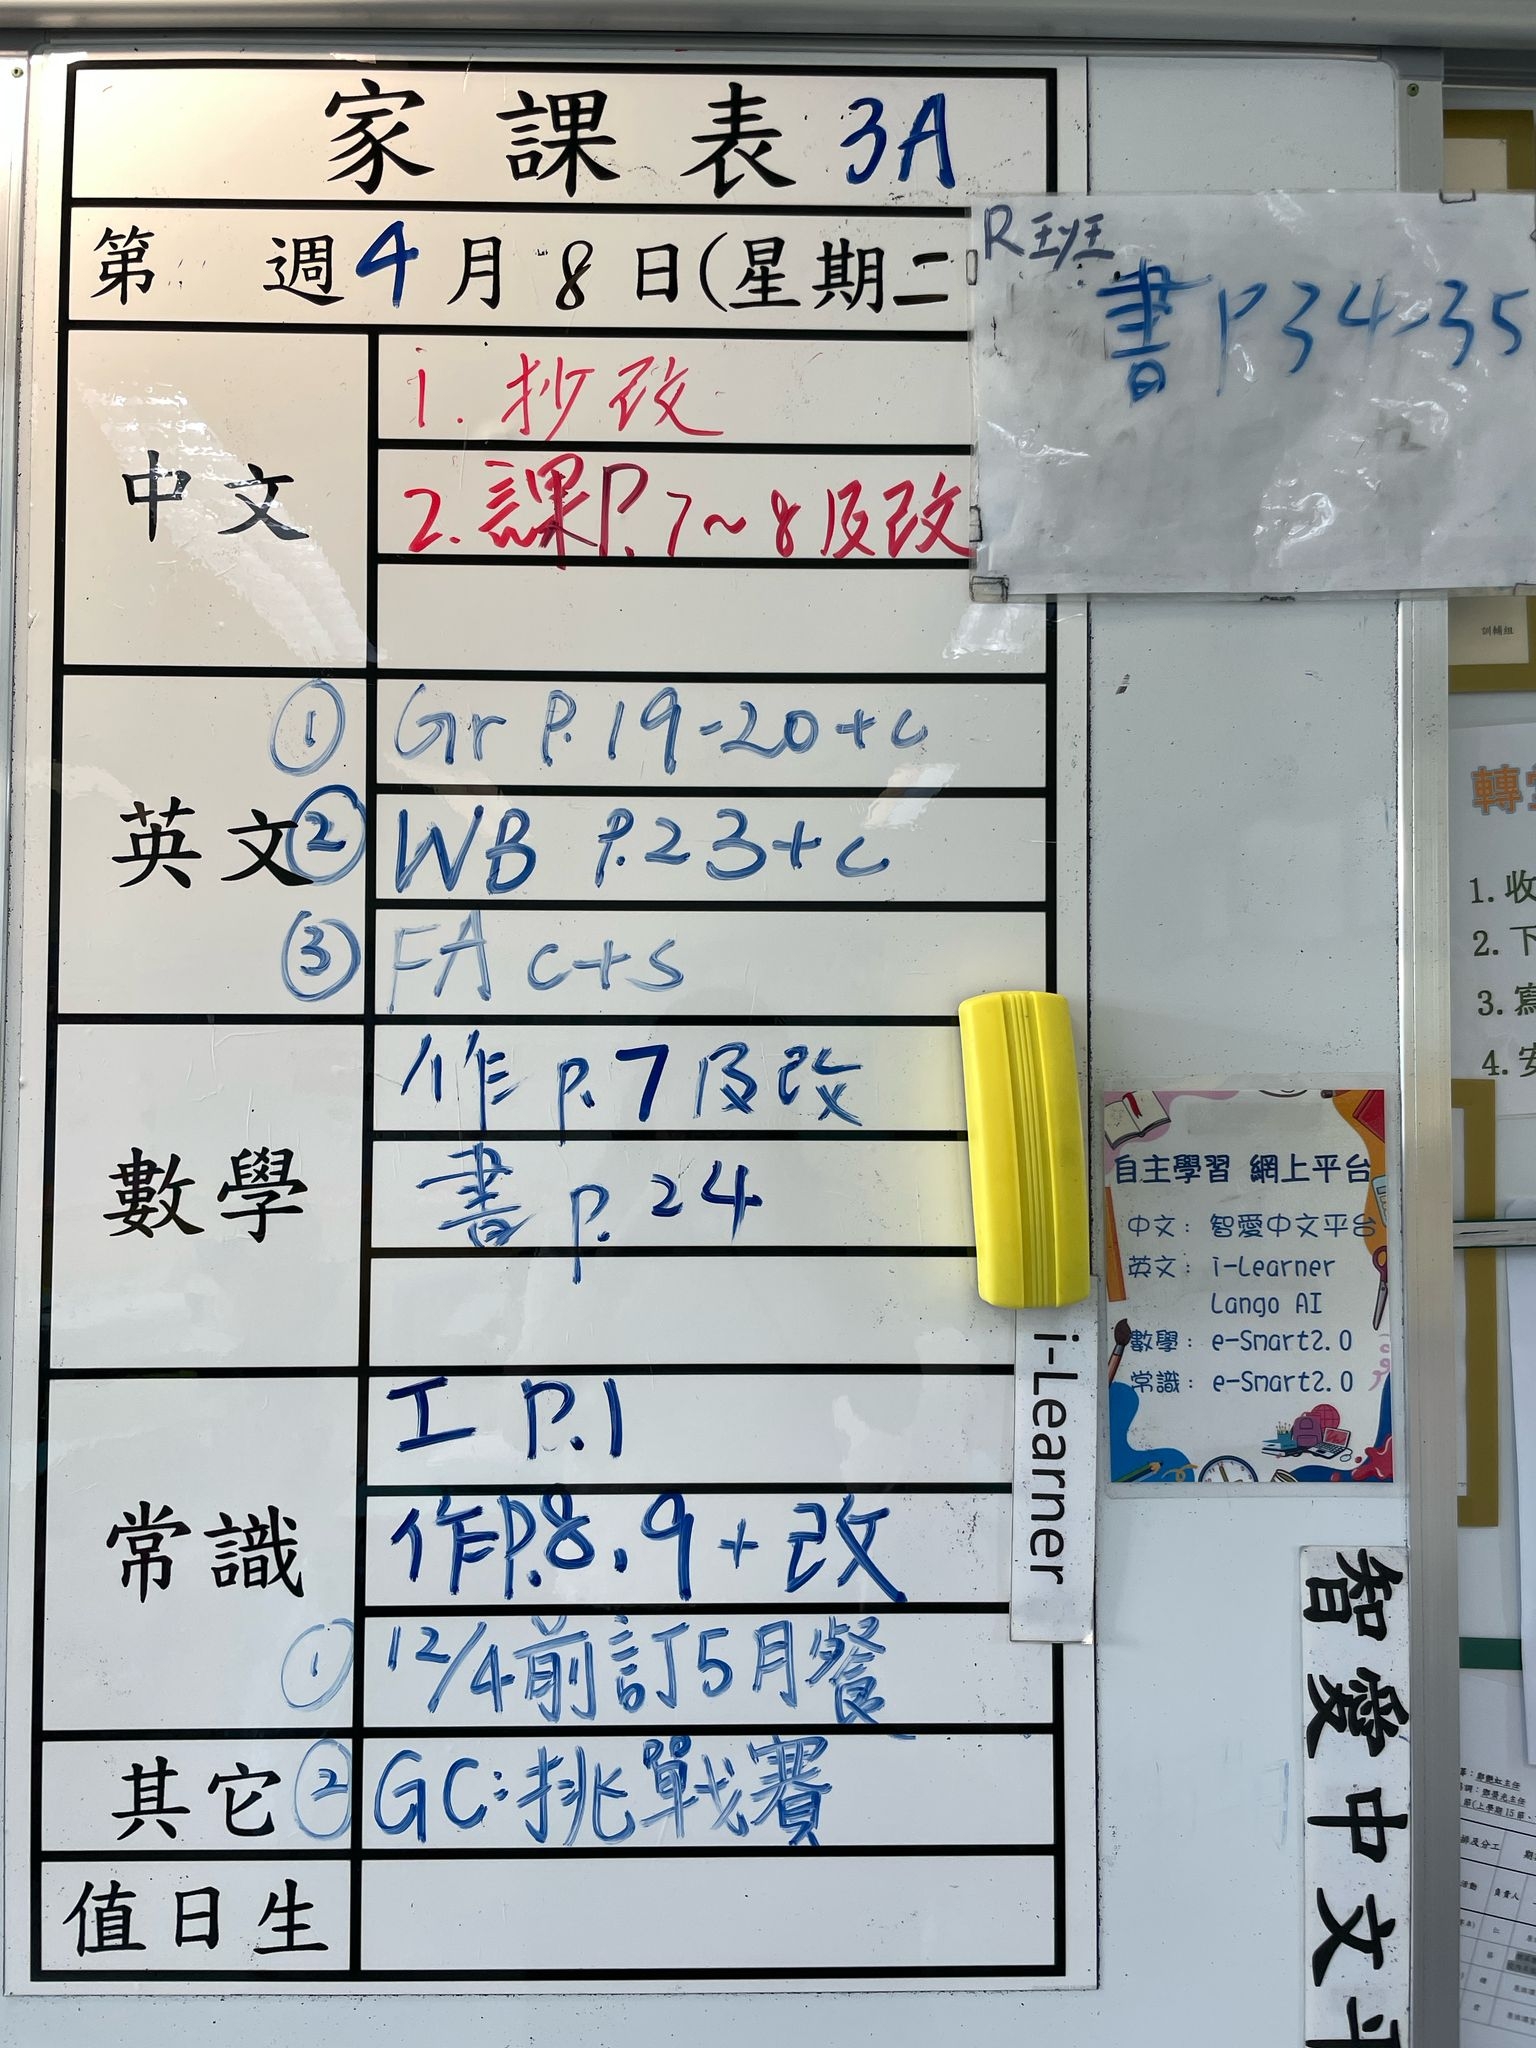 家課表 3A
第 週 4月8日(星期二
R班
書 P.34-35
中文
1. 抄改
2. 課P.7~8及改
英文
① Gr P.19-20+c
② WB P.23+c
③ FA c+s
數學
作 p.7及改
書 p.24
常識
工 P.1
作P.8、9+改
① 12/4前訂5月餐
其它
② GC:挑戰賽
值日生
i-Learner
自主學習 網上平台
中文: 智愛中文平台
英文: i-Learner
Lango AI
數學: e-Smart2.0
常識: e-Smart2.0
智愛中文
訓輔組
轉
1. 收
2. 下
3. 寫
4. 安